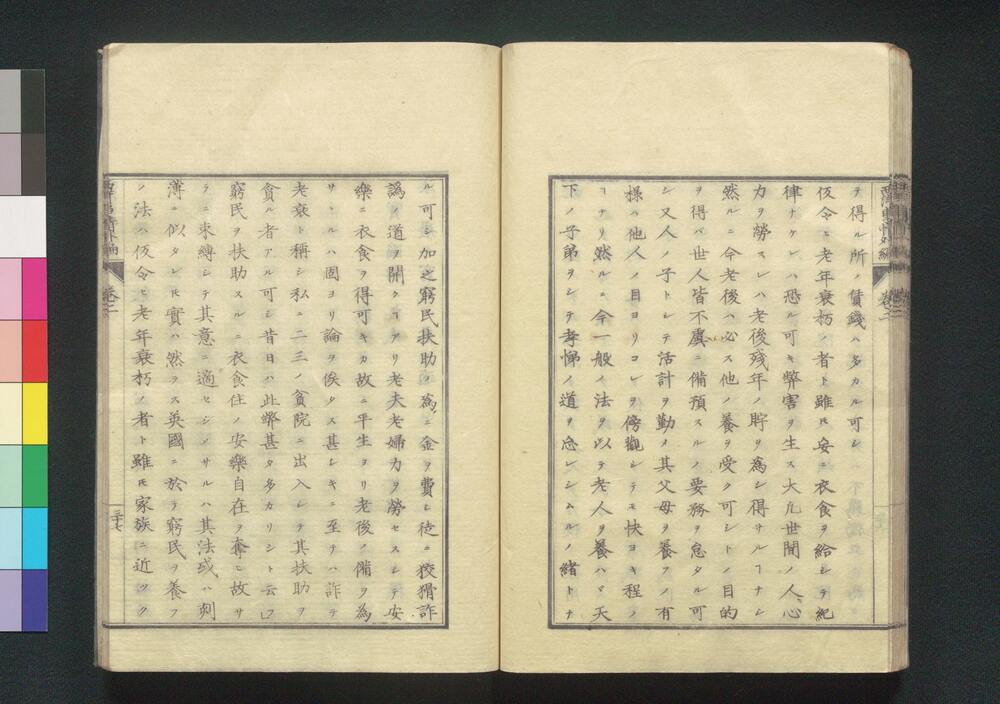 テ得ル所ノ賃錢ハ多カル可シ
仮令ヒ老年衰朽ノ者ト雖𪜈妄ニ衣食ヲ給シテ紀
律ナケレハ恐ル可キ弊害ヲ生ス大凡世間ノ人心
力ヲ勞スレハ老後殘年ノ貯ヲ爲シ得サルヿナシ
然ルニ今老後ハ必ス他ノ養ヲ受ク可シトノ目的
ヲ得バ世人皆不虞ニ備預スルノ要務ヲ怠タル可
シ又人ノ子トシテ活計ヲ勤メ其父母ヲ養フノ有
樣ハ他人ノ目ヨリコレヲ傍觀シテモ快ヨキ程ノ
ヿナリ然ルニ今一般ノ法ヲ以テ老人ヲ養ハヾ天
下ノ子弟ヲシテ孝悌ノ道ヲ怠レシムルノ緒トナ
ル可シ加之窮民扶助ノ爲ニ金ヲ費シ徒ニ狡猾詐
譌ノ道ヲ開クヿアリ老夫老婦力ヲ勞セスシテ安
樂ニ衣食ヲ得可キカ故ニ平生ヨリ老後ノ備ヲ爲
サヽルハ固ヨリ論ヲ俟タス甚シキニ至テハ詐テ
老衰ト稱シ私ニ二三ノ貪院ニ出入シテ其扶助ヲ
貪ル者アル可シ昔日ハ此弊甚タ多カリシト云フ
窮民ヲ扶助スルニ衣食住ノ安樂自在ヲ奪ヒ故サ
ラニ束縛シテ其意ニ適セシメサルハ其法或ハ刻
薄ニ似タレ𪜈實ハ然ラス英國ニ於テ窮民ヲ養フ
ノ法ハ仮令ヒ老年衰朽ノ者ト雖𪜈家族ニ近ツク
卷之二
三十七